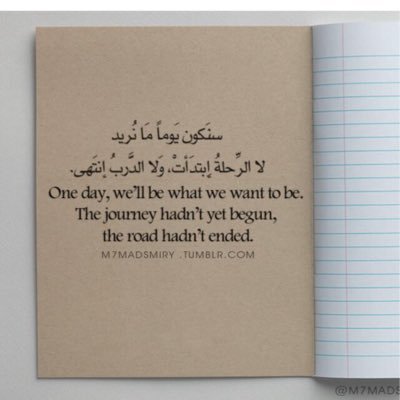 سنَكون يَوماً مَا نُريد
لا الرِّحلةُ إبتدَأتْ، وَلا الدَّربُ إنتَهى.
One day, we'll be what we want to be.
The journey hadn't yet begun,
the road hadn't ended.
M7MADSMIRY .TUMBLR.COM
@M7MADS